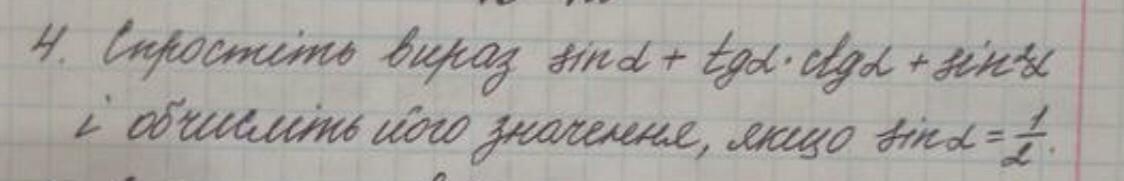 4. Спростіть вираз sinα + tgα · ctgα + sin²α
і обчисліть його значення, якщо sinα = 1/2.